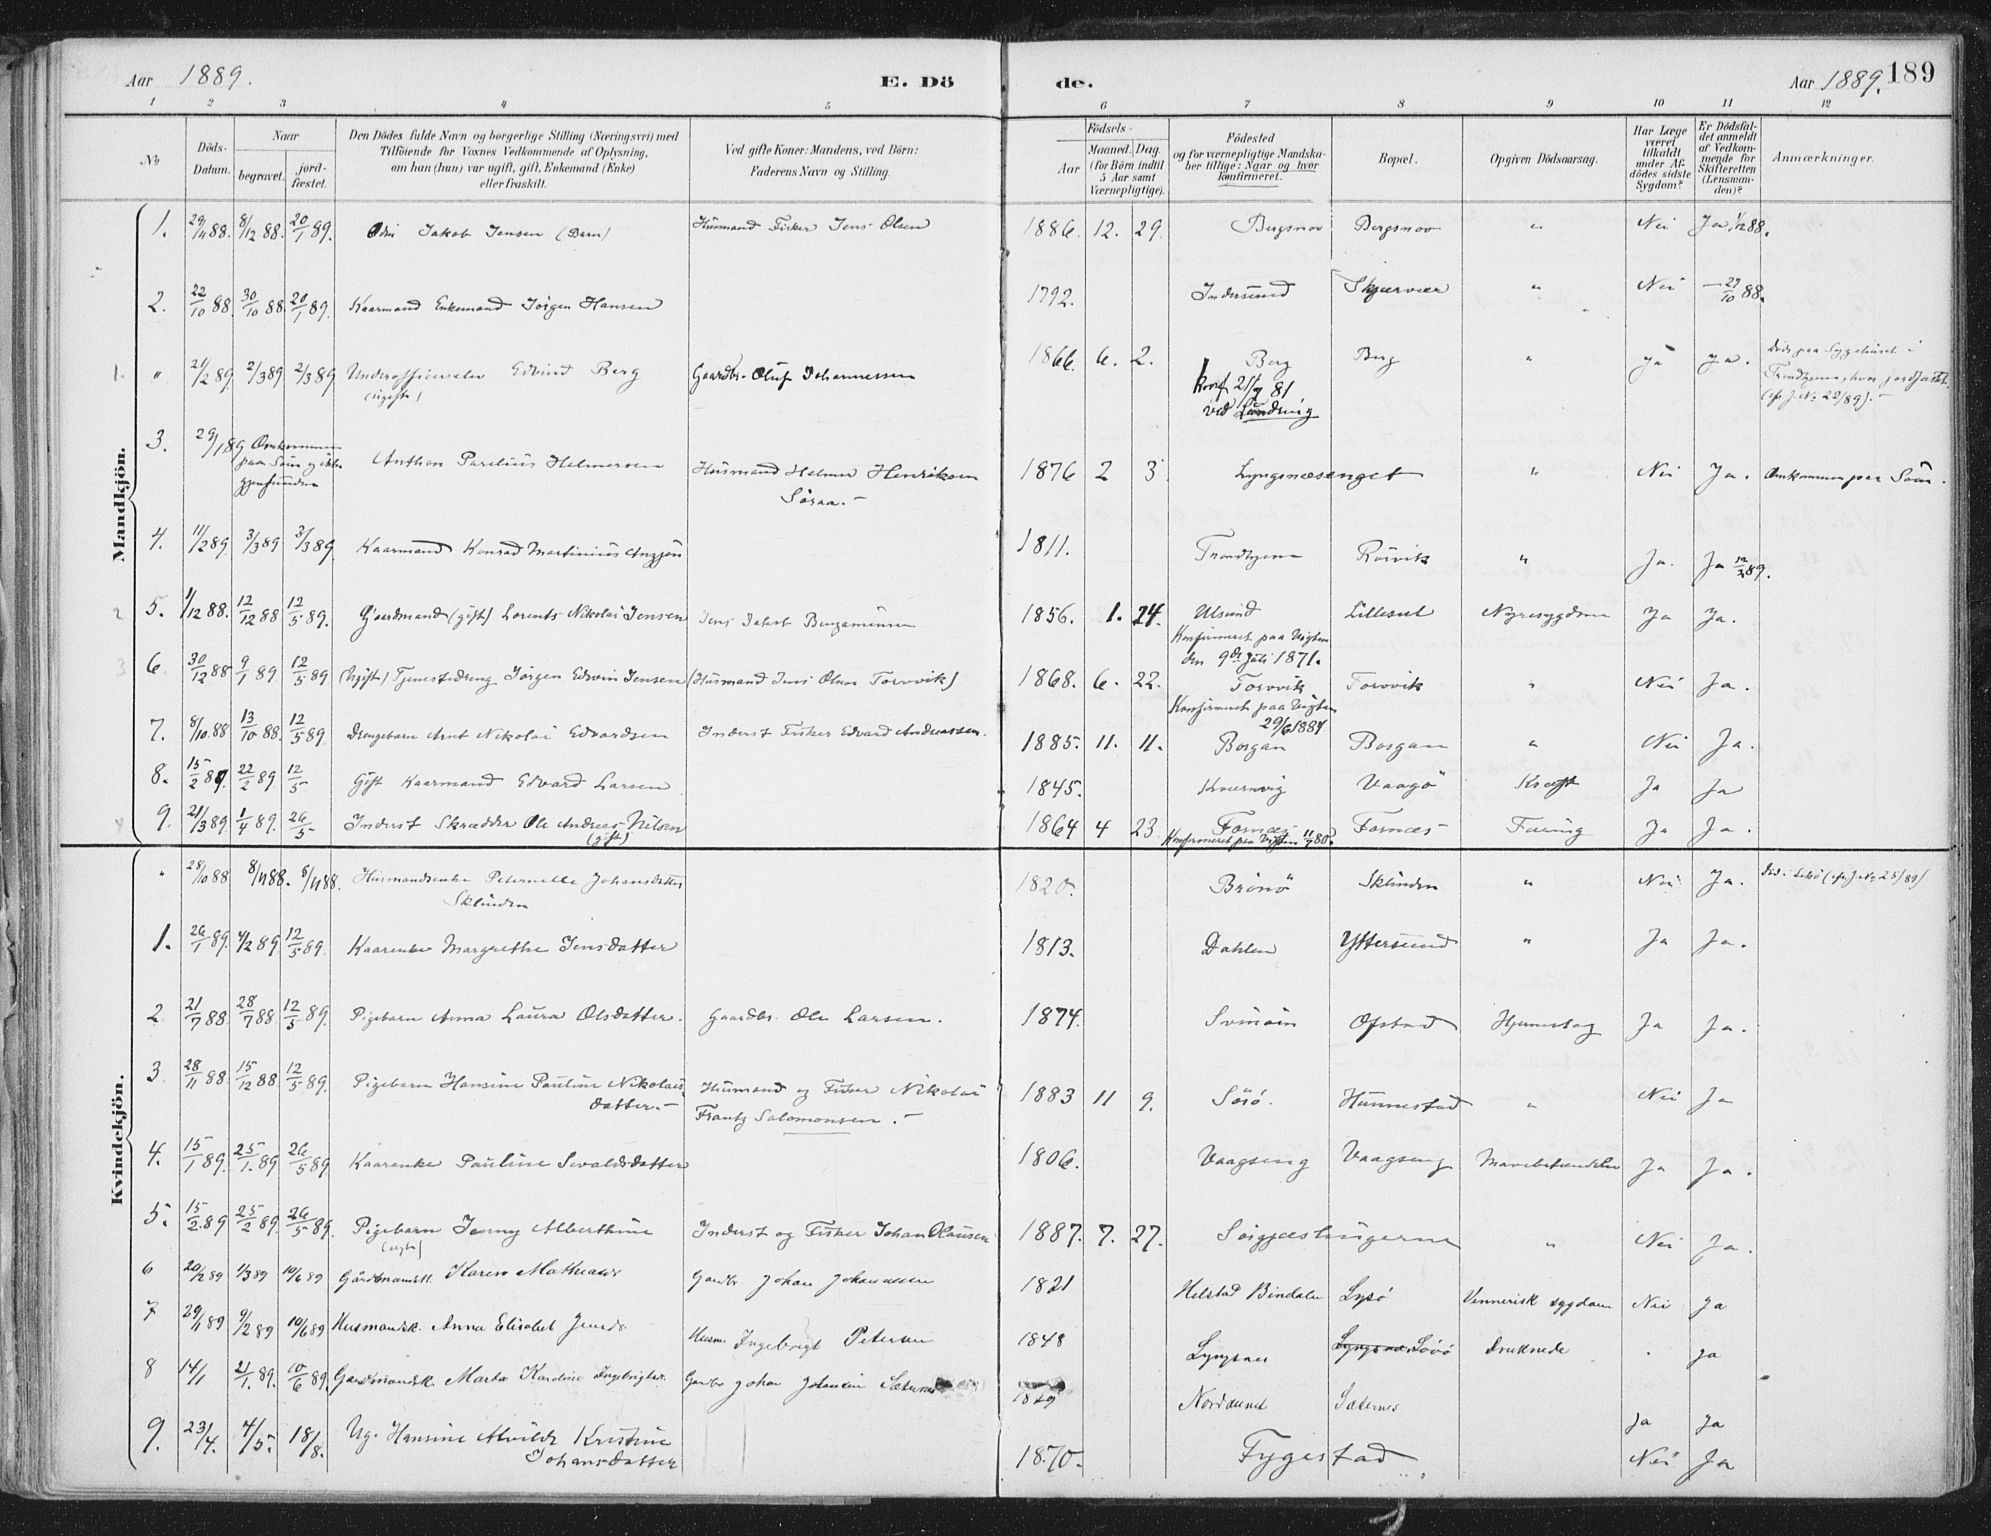 Aar 1889. E. Dö de. Aar 1889. 189
1 2 3 4 5 6 7 8 9 10 11 12
No
Döds-Datum.
Naar begravet. jordfæstet.
Den Dödes fulde Navn og borgerlige Stilling (Næringsvei) med Tilföiende for Voxnes Vedkommende af Oplysning, om han (hun) var ugift, gift, Enkemand (Enke) eller fraskilt.
Ved gifte Koner: Mandens, ved Börn: Faderens Navn og Stilling.
Födsels- Aar Maaned. Dag. (for Börn indtil 5 Aar samt Værnepligtige).
Födested og for værnepligtige Mandskaber tillige: Naar og hvor konfirmeret.
Bopæl.
Opgiven Dödsaarsag.
Har Læge været tilkaldt under Afdödes sidste Sygdom?
Er Dödsfaldet anmeldt af Vedkommende for Skifteretten (Lensmanden)?
Anmærkninger.
Mandkjön.
1. 29/11 88. 8/12 88. 20/1 89. Odin Jakob Jensen (Barn) Husmand Fisker Jens Olsen 1886. 12. 29. Bergsnov Bergsnov " Nei Ja 1/12 88.
2. 22/10 88 30/10 88. 20/1 89. Kaarmand Enkemand Jörgen Hansen 1792. Indersund Skjærvær " Nei — 29/10 88.
1. " 21/2 89 2/3 89 2/3 89 Underofficerselev Edvind Berg Gaardbr. Oluf Johannessen 1866 6. 2. Berg Berg " ja ja. Död paa Sygehuset i
(ugift) konf 21/7 81 Trondhjem, hvor jordfæstet.
ved Lundring (cfr J. No 22/89). –
3. 29/1 89 Omkommen paa Söen og ikke gjenfunden Anthon Parelius Helmersen Husmand Helmer Henriksen 1876 2 3. Lyngsnæsenget " Nei Ja. Omkommen paa Söen.
Söraa. –
4. 11/2 89. 3/3 89 3/3 89. Kaarmand Konrad Martinius Angjen 1811. Trondhjem Rörvik " Ja. Ja 12/3 89.
2 5. 1/12 88. 12/12 88 12/5 89. Gaardmand (gift) Lorents Nikolai Jensen Jens Jakob Benjaminsen 1856. 1. 24. Ulsund Lillesul Nyresygdom Ja Ja.
Konfirmeret paa Vigten
den 9de Juli 1871.
3 6 30/12 88 9/1 89 12/5 89 (Ugift) Tjenestedreng Jörgen Edvin Jensen (Husmand Jens Olsen Torvvik) 1868. 6. 22. Torvvik Torvvik " Nei Ja.
Konfirmeret paa Vigten
29/6 1884
7. 8/10 88 13/10 88. 12/5 89. Drengebarn Arnt Nikolai Edvardsen Inderst Fisker Edvard Andreassen. 1885. 11. 11. Borgan Borgan " Nei Ja.
8. 15/2 89. 22/2 89 12/5 Gift Kaarmand Edvard Larsen 1845. Kvernvig Vaagö Kræft Ja Ja
4 9. 21/3 89. 1/4 89. 26/5 Inderst Skrædder Ole Andreas Nilsen 1864 4 23. Fornæs Fornæs Tæring Ja Ja.
(gift) Konfirmeret paa Vigten 11/7 80.
Kvindekjön.
" 28/10 88 8/11 88. 8/11 88. Husmandsenke Peternelle Johansdatter 1820. Brönö Sklinden " Nei Ja. Död i Leksö (cfr J. No 25/89)
Sklinden
1. 26/1 89. 4/2 89 12/5 89. Kaarenke Margrethe Jensdatter 1813. Dahlen Yttersund " Ja Ja.
2 21/7 88 28/7 88 12/5 89. Pigebarn Anna Laura Olsdatter. Gaardbr. Ole Larsen. 1874. Svinöen Ofstad Hjerneslag Ja Ja.
3 28/11 88 15/12 88 12/5 89. Pigebarn Hansine Pauline Nikolais- Husmand og Fisker Nikolai 1883 11 9. Sörö. Hunnestad " Nei Ja
datter. – Frantz Salomonsen. –
4. 15/1 89. 25/1. 89 26/5 89 Kaarenke Pauline Sivaldsdatter 1806. Vaagseng Vaagseng Mavebetændelse Ja Ja.
5. 15/2. 89 25/2 89. 26/5 89. Pigebarn Jenny Alberthine Inderst og Fisker Johan Olausen 1887. 7. 27. Sörgjæslingerne " Nei Ja.
(ægte)
6 20/2 89 1/3 89 10/6 89 Karen Mathiasd. Gaardbr. Johan Johannesen 1821 Helstad Bindalen Lysö Vennerisk sygdom Nei Ja
7 29/1 89 9/2 89 10/6 89 Husmandsk. Anna Elisabet Jensd. Husm. Ingebrigt Petersen 1848 Lyngsnæs Druknede . ja
8 14/1 21/1. 89. 10/6 89. Gardmandsk. Marta Karoline Ingebrigtsd. Gardbr Johan Johansen Sæternes 1829 Nordsund Sæternes ja ja
9. 23/4. 4/5. 18/8. Ug. Hansine Alvilde Kristine 1870. Fygestad Nei Ja
Johansdatter